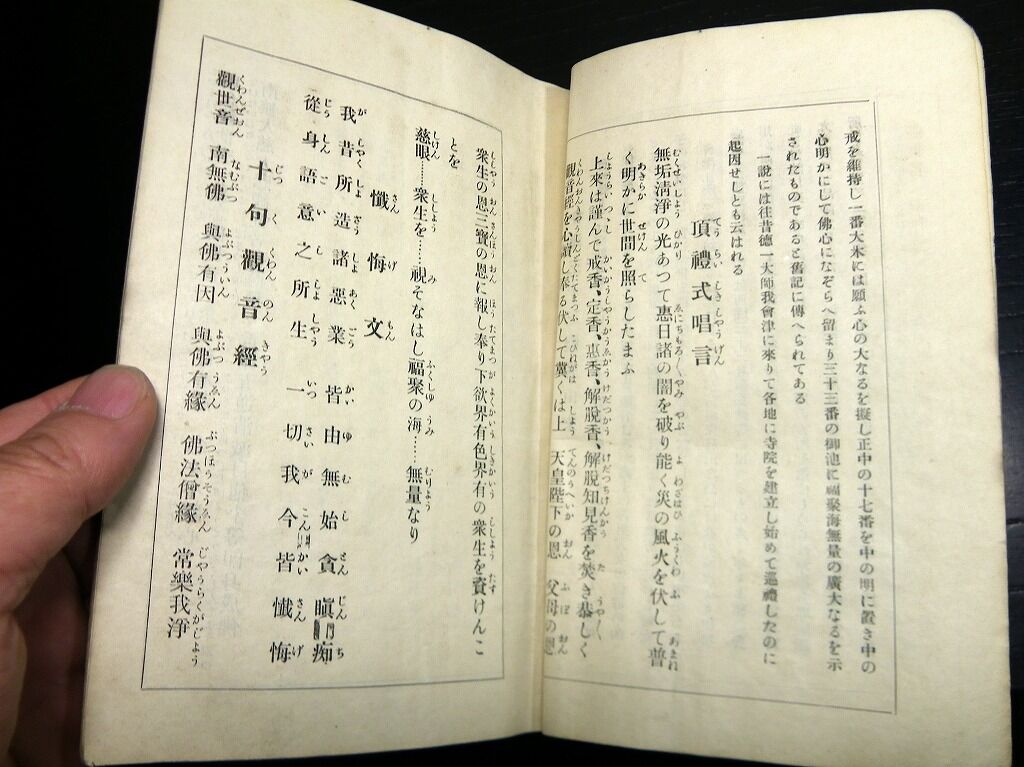 戒を維持し一番大木には願ふ心の大なるを擬し正中の十七番を中の明に置き中の
心明かにして佛心になぞらへ留まり三十三番の御池に福聚海無量の廣大なるを示
されたものであると舊記に傳へられてある
一説には往昔德一大師我會津に來りて各地に寺院を建立し始めて巡禮したのに
起因せしとも云はれる
頂禮式唱言
無垢淸淨の光あつて惠日諸の闇を破り能く災の風火を伏して普
く明かに世間を照らしたまふ
上來は謹んで戒香、定香、惠香、解脫香、解脫知見香を焚き恭しく
觀音經を心讀し奉る伏して冀くは上 天皇陛下の恩 父母の恩
衆生の恩三寶の恩に報し奉り下欲界有色界有の衆生を資けんこ
とを
慈眼……衆生を……視そなはし福聚の海……無量なり
懺悔文
我昔所造諸惡業 皆由無始貪瞋痴
從身語意之所生 一切我今皆懺悔
十句觀音經
觀世音 南無佛 與佛有因 與佛有緣 佛法僧緣 常樂我淨